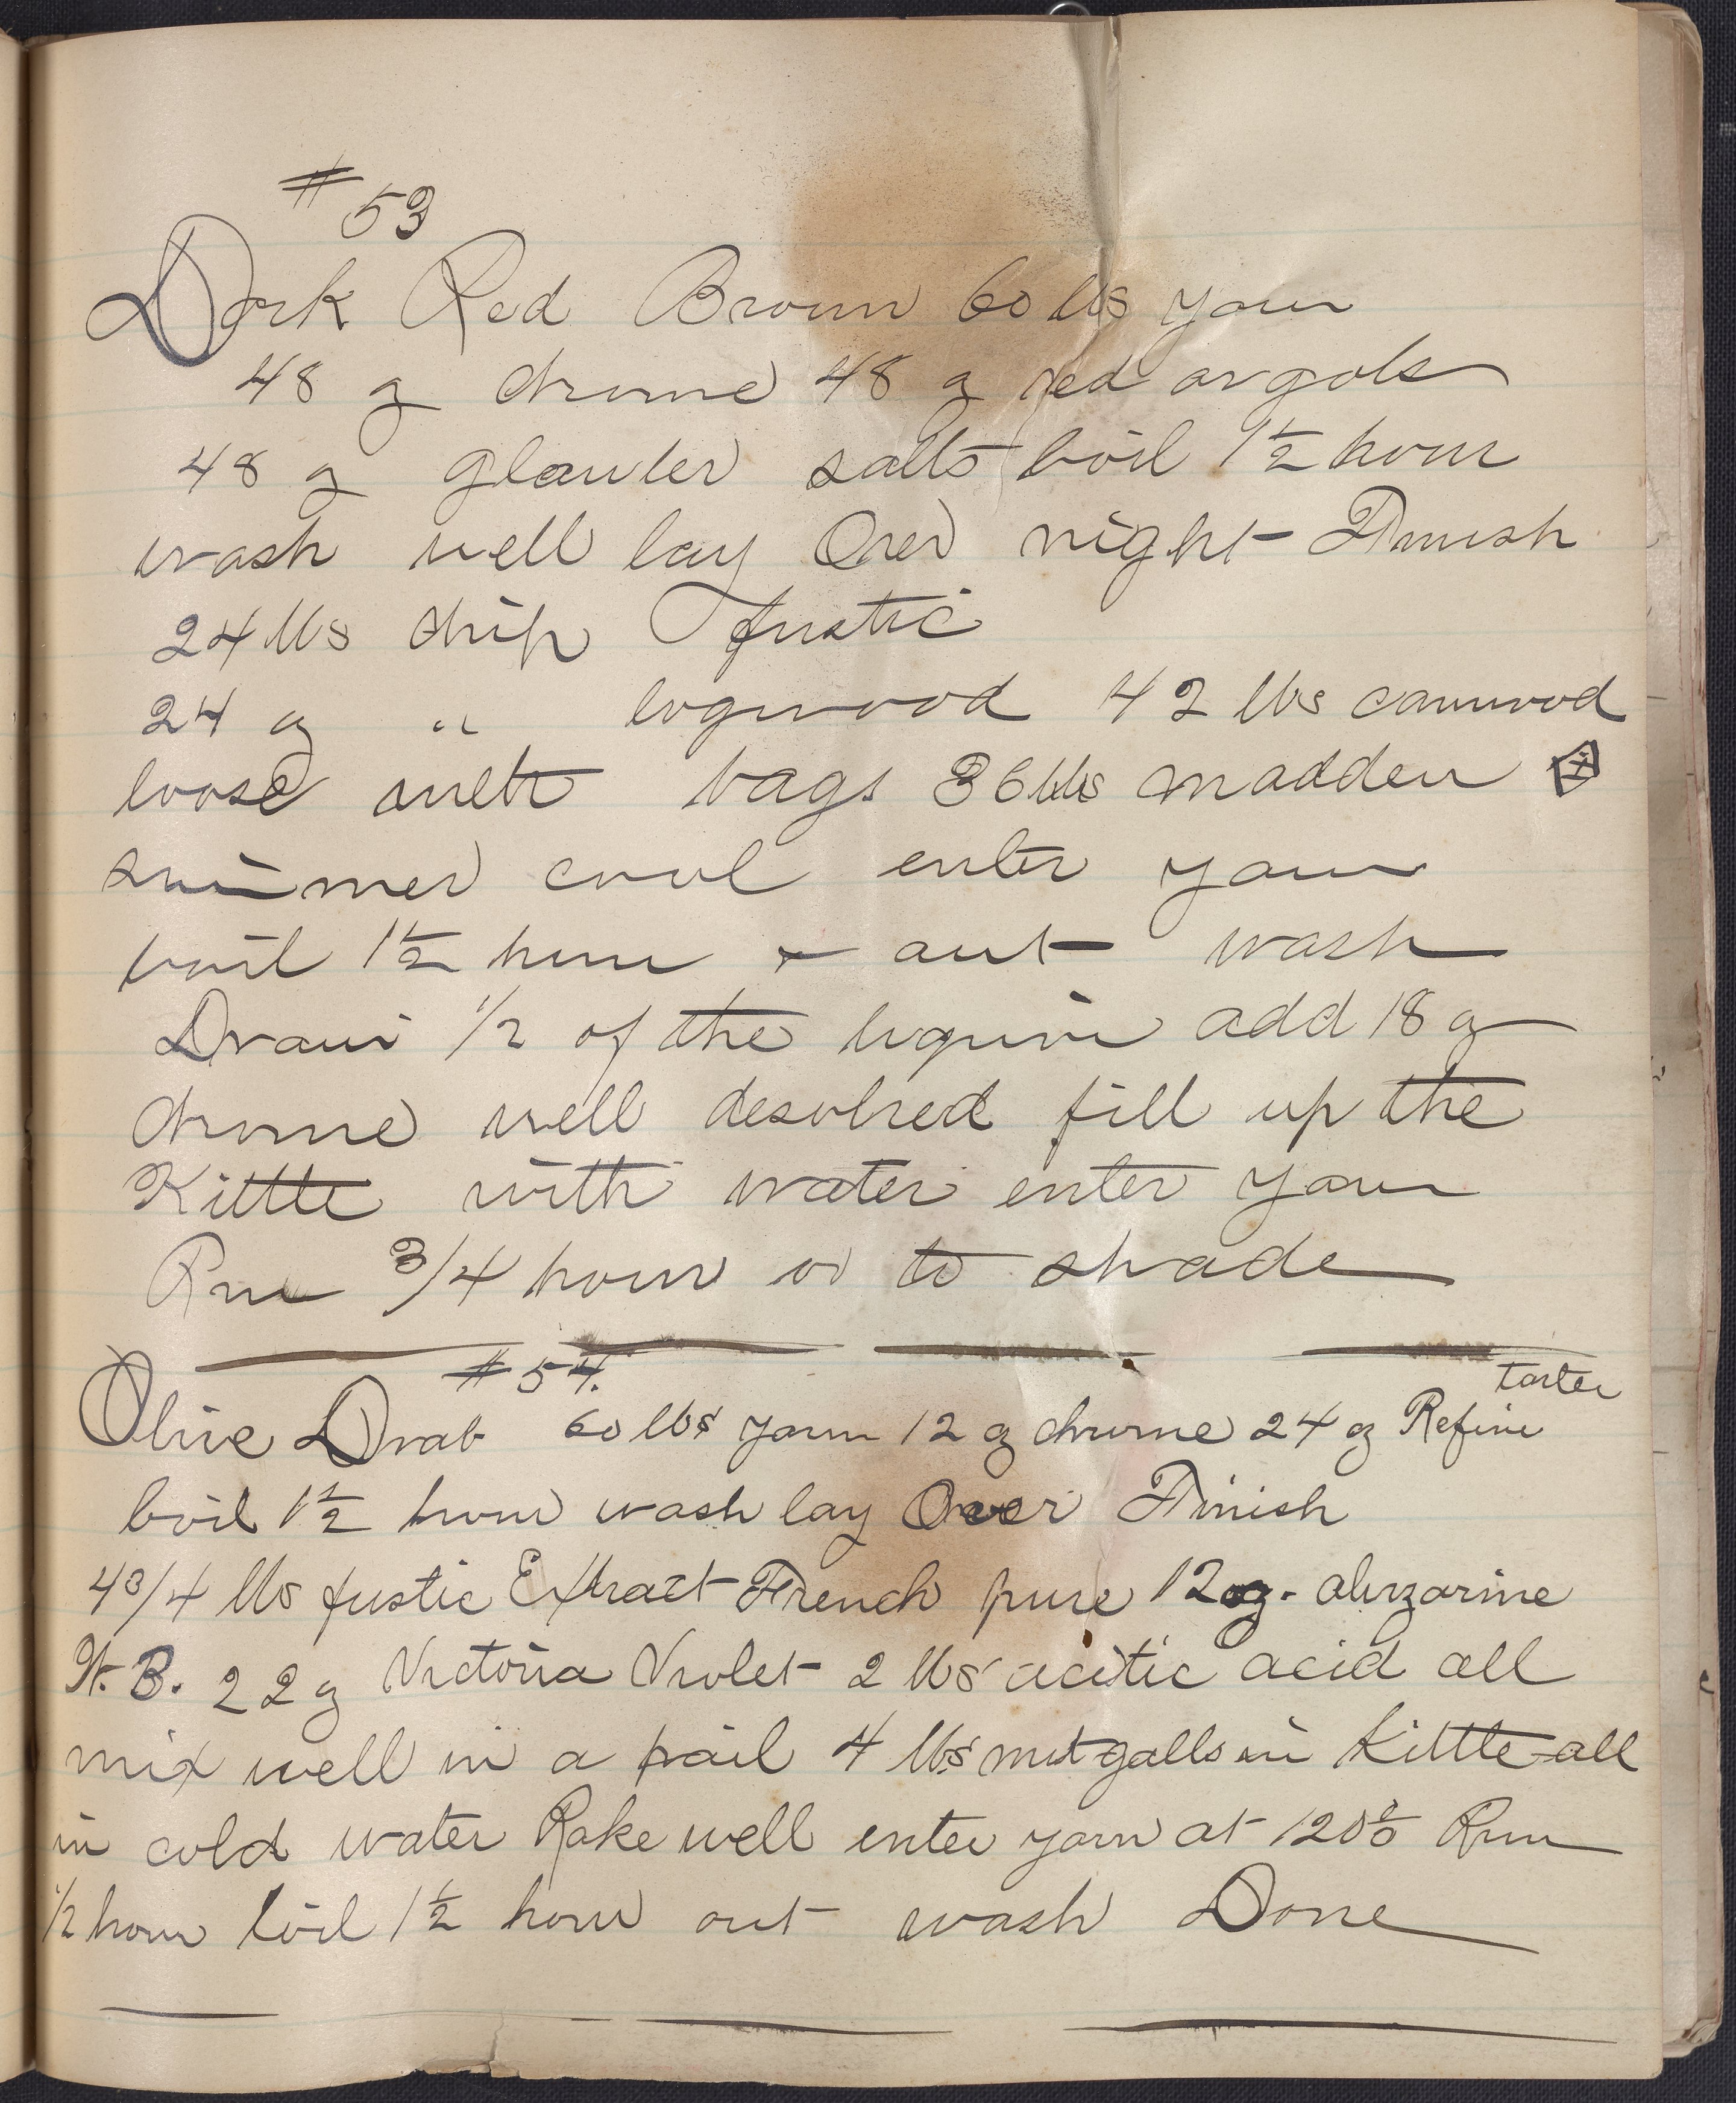 #53
Dark Red Brown 60 lbs yarn
48 oz chrome 48 oz red argols
48 oz glauber salts boil 1½ hour
wash well lay Over night Finish
24 lbs chip fustic
24 oz " logwood 42 lbs camwood
loose in bags 36 lbs madder
simmer cool enter yarn
boil 1½ hour & out wash
Draw 1/2 of the liquor add 18 oz
chrome well desolved fill up the
Kittle with water enter yarn
Run 3/4 hour or to shade
#54.
tarter
Olive Drab 60 lbs yarn 12 oz chrome 24 oz Refine
boil 1½ hour wash lay Over Finish
4 3/4 lbs fustic Extract French pure 12 oz. alizarine
W. B. 22 oz Victoria Violet 2 lbs acitic acid all
mix well in a pail 4 lbs nutgalls in Kittle all
in cold water Rake well enter yarn at 120° Run
1/2 hour boil 1½ hour out wash Done